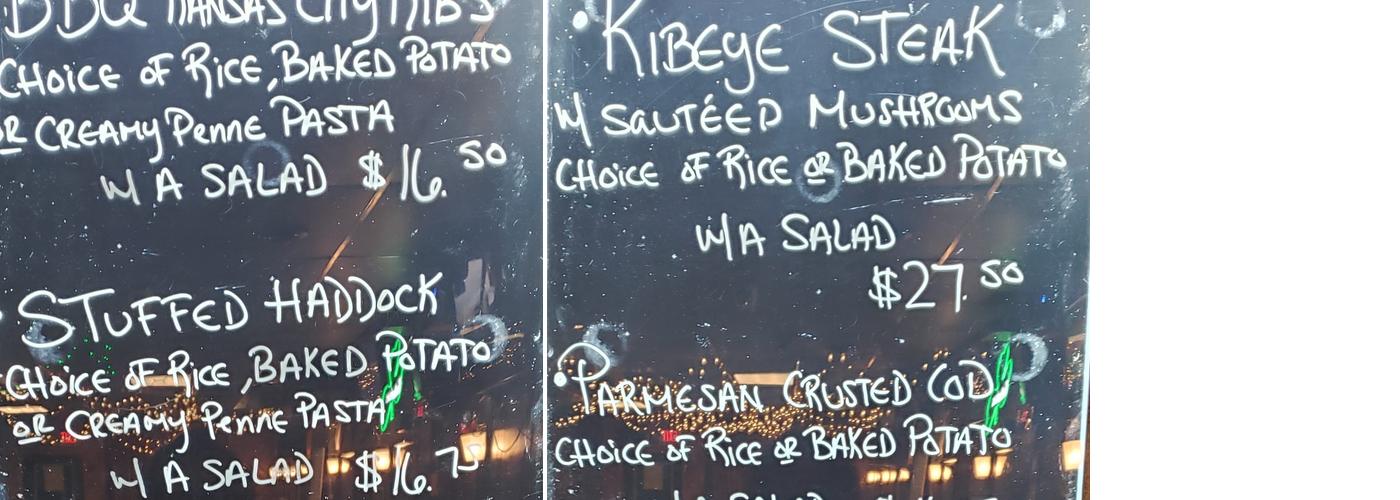 BBQ KANSAS CITY RIBS
CHOICE OF RICE, BAKED POTATO
OR CREAMY PENNE PASTA
W/ A SALAD $16.50
STUFFED HADDOCK
CHOICE OF RICE, BAKED POTATO
OR CREAMY PENNE PASTA
W/ A SALAD $16.75
• RIBEYE STEAK
W/ SAUTÉED MUSHROOMS
CHOICE OF RICE OR BAKED POTATO
W/A SALAD
$27.50
• PARMESAN CRUSTED COD
CHOICE OF RICE OR BAKED POTATO